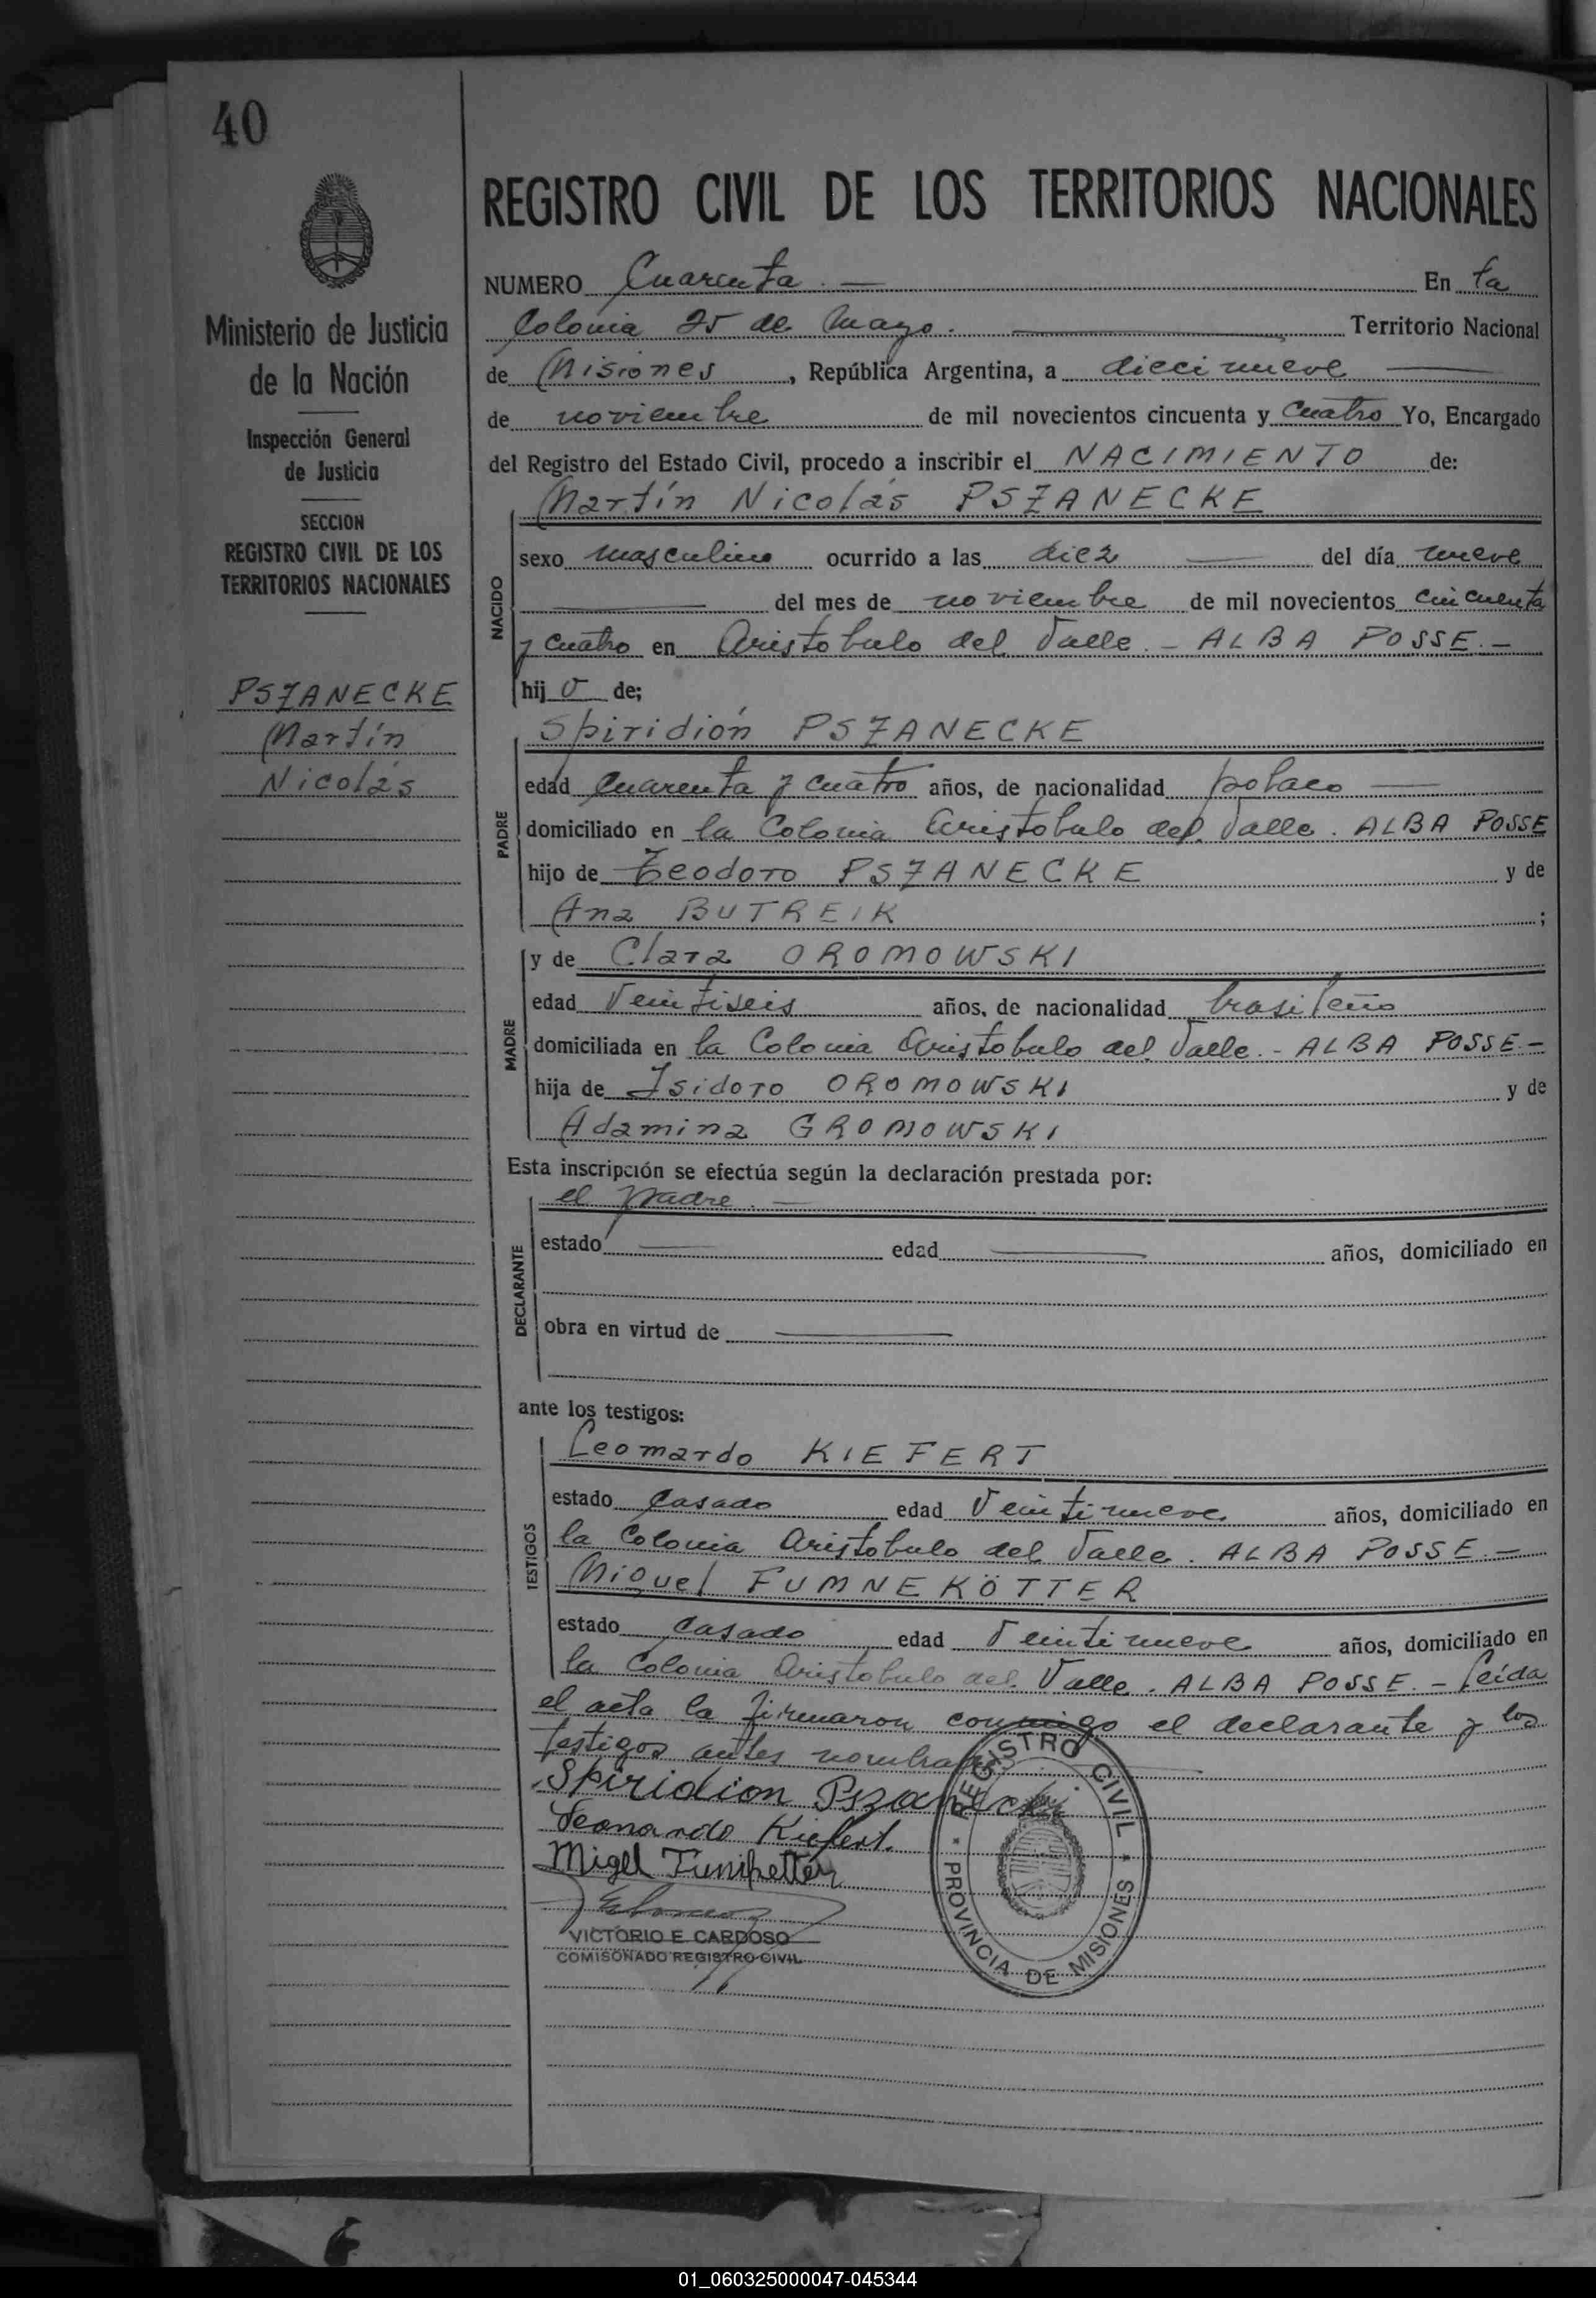 40
REGISTRO CIVIL DE LOS TERRITORIOS NACIONALES
Ministerio de Justicia
de la Nación
Inspección General
de Justicia
SECCION
REGISTRO CIVIL DE LOS
TERRITORIOS NACIONALES
PSZANECKE
Martín
Nicolás
NUMERO Cuarenta. — En la
Colonia 25 de Mayo. — Territorio Nacional
de Misiones, República Argentina, a diecinueve —
de noviembre de mil novecientos cincuenta y cuatro Yo, Encargado
del Registro del Estado Civil, procedo a inscribir el NACIMIENTO de:
NACIDO
Martín Nicolás PSZANECKE
sexo masculino ocurrido a las diez — del día nueve
— del mes de noviembre de mil novecientos cincuenta
y cuatro en Aristobulo del Valle. - ALBA POSSE. -
hijo de;
PADRE
Spiridión PSZANECKE
edad cuarenta y cuatro años, de nacionalidad polaco —
domiciliado en la Colonia Aristobulo del Valle. ALBA POSSE
hijo de Teodoro PSZANECKE y de
Ana BUTREIK ;
MADRE
y de Clara OROMOWSKI
edad Veintiseis años, de nacionalidad brasileño
domiciliada en la Colonia Aristobulo del Valle. - ALBA POSSE -
hija de Isidoro OROMOWSKI y de
Adamina GROMOWSKI
Esta inscripción se efectúa según la declaración prestada por:
DECLARANTE
el padre. —
estado — edad — años, domiciliado en
obra en virtud de —
ante los testigos:
TESTIGOS
Leomardo KIEFERT
estado casado edad Veintinueve años, domiciliado en
la Colonia Aristobulo del Valle. ALBA POSSE. -
Miguel FUMNEKÖTTER
estado casado edad Veintinueve años, domiciliado en
la Colonia Aristobulo del Valle. ALBA POSSE. - Leída
el acta la firmaron conmigo el declarante y los
testigos antes nombrados.
Spiridion Pszanecki
Leonardo Kiefert.
Migel
VICTORIO E. CARDOSO
COMISONADO REGISTRO CIVIL
REGISTRO CIVIL * PROVINCIA DE MISIONES *
01_060325000047-045344